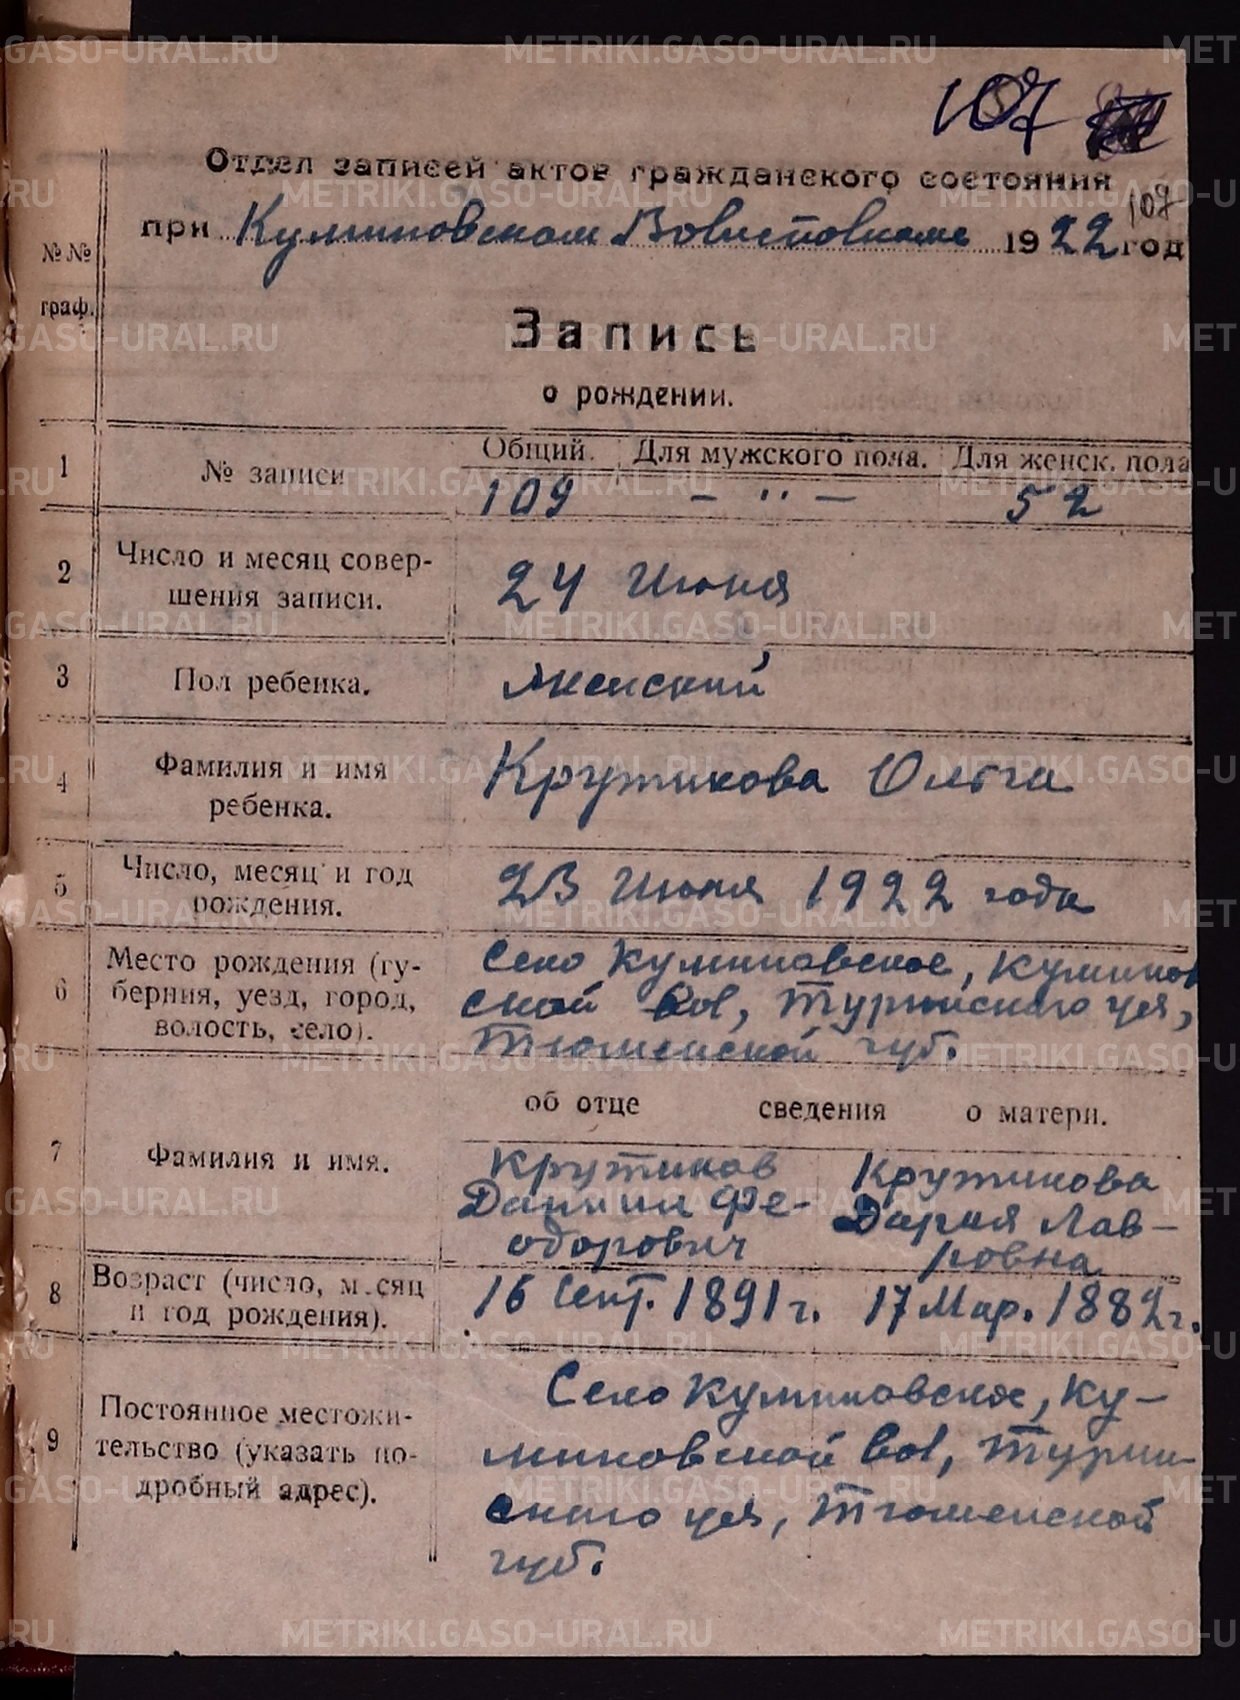 107
Отдел записей актов гражданского состояния
107
при Куминовском Волисполкоме 1922 год
№№ граф.
Запись
о рождении.
1 № записи Общий. Для мужского пола. Для женск. пола
109 — " — 52
2 Число и месяц совер-
шения записи. 24 Июня
3 Пол ребенка. Женский
4 Фамилия и имя
ребенка. Крутикова Ольга
5 Число, месяц и год
рождения. 23 Июня 1922 года
6 Место рождения (гу-
берния, уезд, город,
волость, село).
Село Куминовское, Куминов
ской вол, Туринского уез,
Тюменской губ.
об отце сведения о матери.
7 Фамилия и имя.
Крутиков
Даниил Фе-
одорович
Крутикова
Дария Лав-
ровна
8 Возраст (число, месяц
и год рождения).
16 Сент. 1891 г. 17 Мар. 1882 г.
9 Постоянное местожи-
тельство (указать по-
дробный адрес).
Село Куминовское, Ку-
миновской вол, Турин-
ского уез, Тюменской
губ.
METRIKI.GASO-URAL.RU